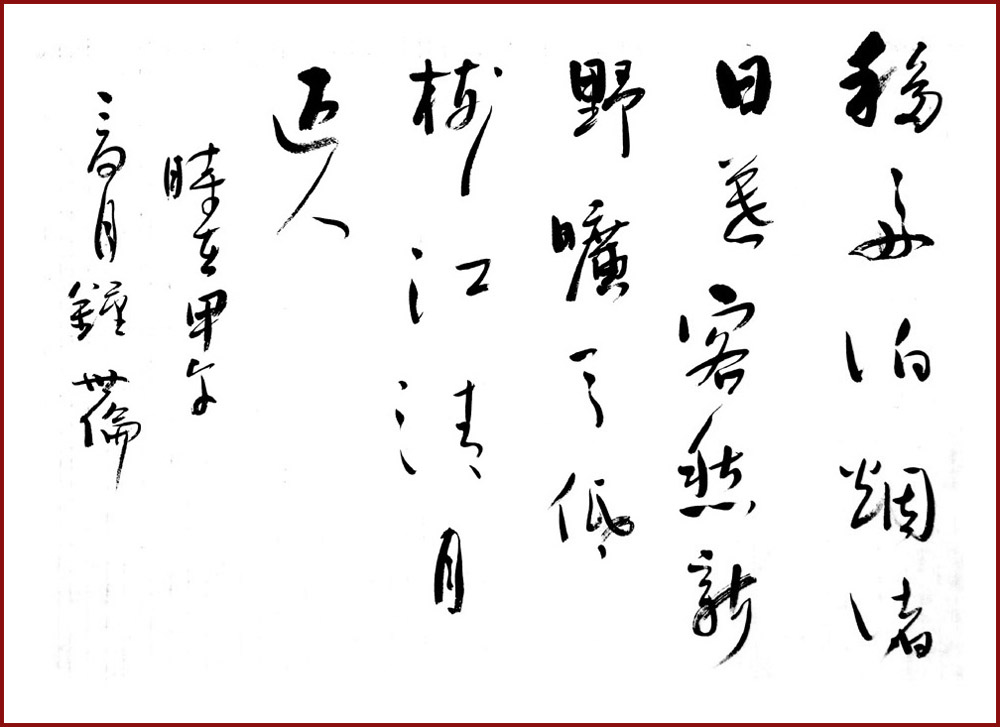 移舟泊烟渚
日暮客愁新
野曠天低
樹江清月
近人
時在甲午
月鍾世倫